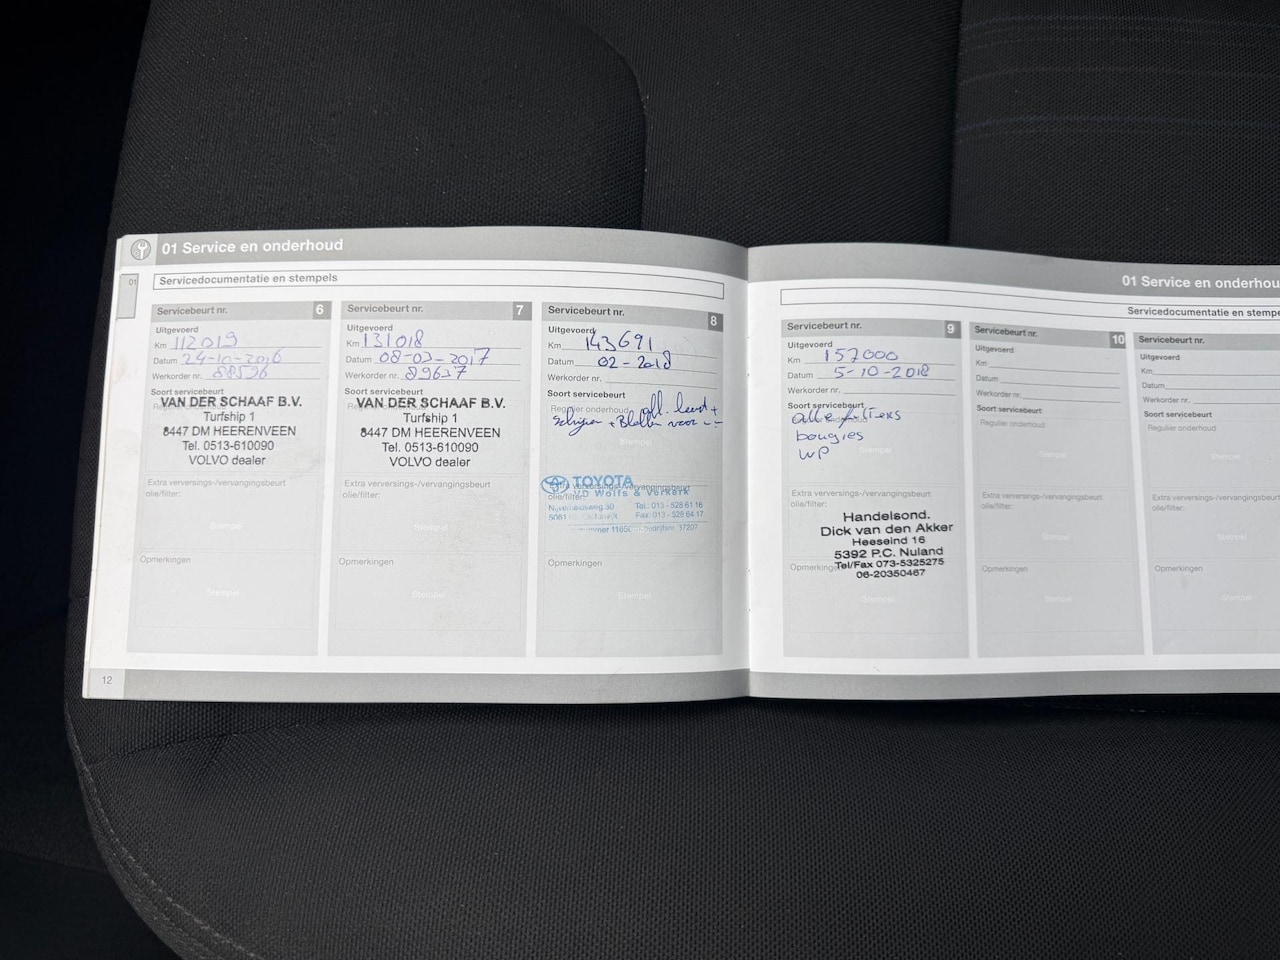 01 Service en onderhoud
01
Servicedocumentatie en stempels
Servicebeurt nr. 6
Uitgevoerd
Km 112019
Datum 24-10-2016
Werkorder nr. 88596
Soort servicebeurt
VAN DER SCHAAF B.V.
Turfship 1
8447 DM HEERENVEEN
Tel. 0513-610090
VOLVO dealer
Extra verversings-/vervangingsbeurt
olie/filter:
Stempel
Opmerkingen
Stempel
Servicebeurt nr. 7
Uitgevoerd
Km 131018
Datum 08-03-2017
Werkorder nr. 89637
Soort servicebeurt
VAN DER SCHAAF B.V.
Turfship 1
8447 DM HEERENVEEN
Tel. 0513-610090
VOLVO dealer
Extra verversings-/vervangingsbeurt
olie/filter:
Stempel
Opmerkingen
Stempel
Servicebeurt nr. 8
Uitgevoerd
Km 143691
Datum 02-2018
Werkorder nr.
Soort servicebeurt
Regulier onderhoud
+ voor
Stempel
TOYOTA
Extra verversings-/vervangingsbeurt
olie/filter:
VD Wolfs & Verkerk
30 Tel.: 013 - 528 61 16
5061 Fax: 013 - 528 64 17
37207
Opmerkingen
Stempel
12
01 Service en onderhou
Servicedocumentatie en stempe
Servicebeurt nr. 9
Uitgevoerd
Km 157000
Datum 5-10-2018
Werkorder nr.
Soort servicebeurt
alle filters
bougies
WP
Stempel
Extra verversings-/vervangingsbeurt
olie/filter:
Handelsond.
Dick van den Akker
Heeseind 16
5392 P.C. Nuland
Tel/Fax 073-5325275
06-20350467
Opmerkingen
Stempel
Servicebeurt nr. 10
Uitgevoerd
Km
Datum
Werkorder nr.
Soort servicebeurt
Regulier onderhoud
Stempel
Extra verversings-/vervangingsbeurt
olie/filter:
Stempel
Opmerkingen
Stempel
Servicebeurt nr.
Uitgevoerd
Km
Datum
Werkorder nr.
Soort servicebeurt
Regulier onderhoud
Stempel
Extra verversings-/vervangingsbeurt
olie/filter:
Stempel
Opmerkingen
Stempel